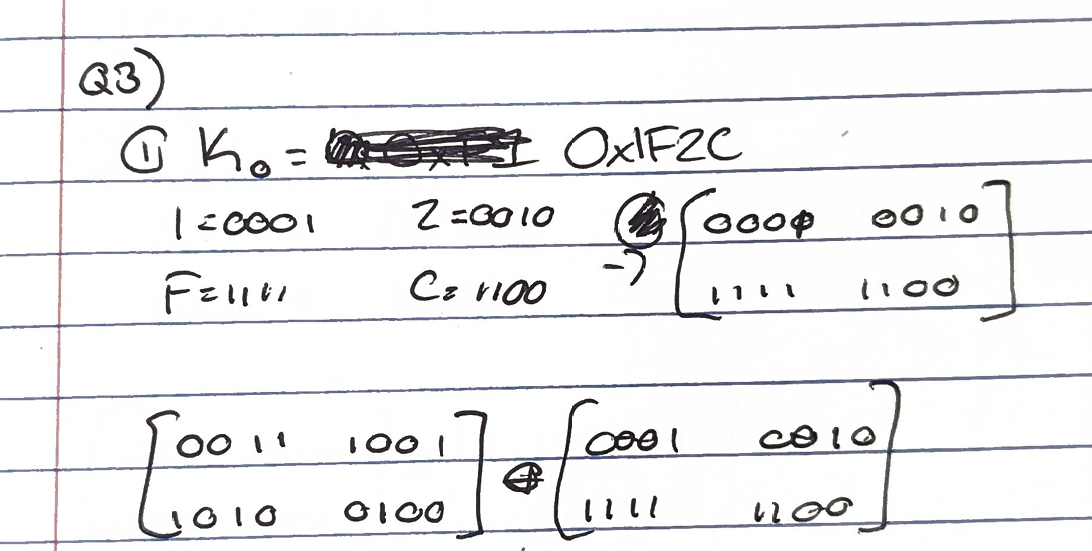 Q3)
① K₀ = 0x1F2C
1 = 0001 2 = 0010 [0000 0010
F = 1111 C = 1100 → 1111 1100]
[0011 1001 [0001 0010
1010 0100] ⊕ 1111 1100]